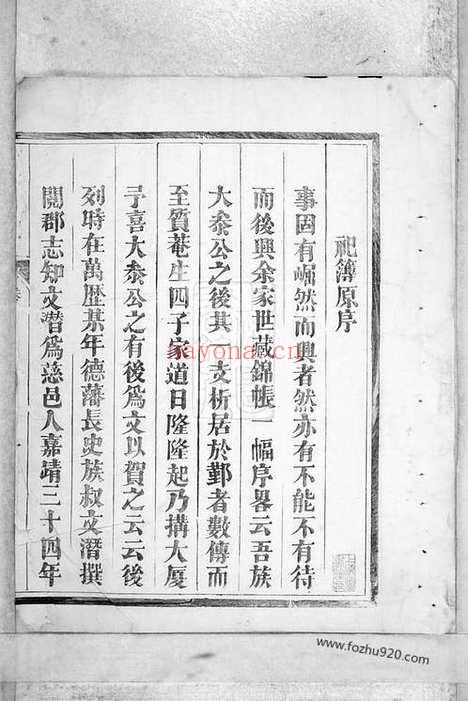 祀簿原序
事固有崛然而興者然亦有不能不有待
而後興余家世藏錦帳一幅序畧云吾族
大泰公之後其一支析居於鄞者數傳而
至質菴生四子家道日隆隆起乃搆大厦
予喜大泰公之有後為文以賀之云云後
列時在萬歷某年德藩長史族叔文潛撰
閱郡志知文潛為慈邑人嘉靖三十四年
nayona.cn
www.fozhu920.com